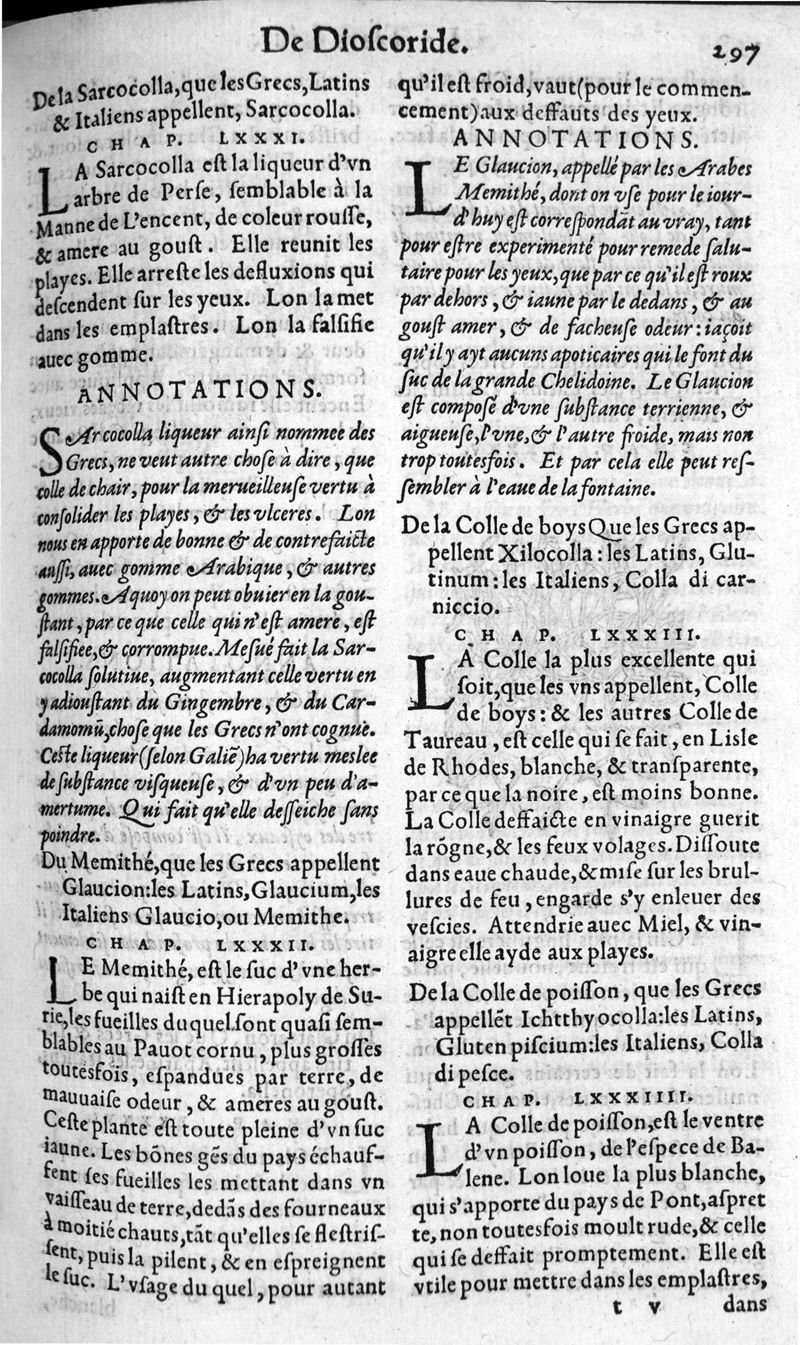 De Dioſcoride.
297
De la Sarcocolla, que les Grecs, Latins
& Italiens appellent, Sarcocolla.
CHAP. LXXXI.
LA Sarcocolla eſt la liqueur d'vn
arbre de Perſe, ſemblable à la
Manne de L'encent, de coleur rouſſe,
& amere au gouſt. Elle reunit les
playes. Elle arreſte les defluxions qui
deſcendent ſur les yeux. Lon la met
dans les emplaſtres. Lon la falſifie
auec gomme.
ANNOTATIONS.
SArcocolla liqueur ainſi nommee des
Grecs, ne veut autre choſe à dire, que
colle de chair, pour la merueilleuſe vertu à
conſolider les playes, & les vlceres. Lon
nous en apporte de bonne & de contrefaicte
auſſi, auec gomme Arabique, & autres
gommes. A quoy on peut obuier en la gou-
ſtant, par ce que celle qui n'eſt amere, eſt
falſifiee, & corrompue. Meſué fait la Sar-
cocolla ſolutiue, augmentant celle vertu en
y adiouſtant du Gingembre, & du Car-
damomũ, choſe que les Grecs n'ont cognuë.
Ceſte liqueur (ſelon Galiẽ) ha vertu meslee
de ſubſtance viſqueuſe, & d'vn peu d'a-
mertume. Qui fait qu'elle deſſeiche ſans
poindre.
Du Memithé, que les Grecs appellent
Glaucion: les Latins, Glaucium, les
Italiens Glaucio, ou Memithe.
CHAP. LXXXII.
LE Memithé, eſt le ſuc d'vne her-
be qui naiſt en Hierapoly de Su-
rie, les fueilles duquel ſont quaſi ſem-
blables au Pauot cornu, plus groſſes
toutesfois, eſpandues par terre, de
mauuaiſe odeur, & ameres au gouſt.
Ceſte plante eſt toute pleine d'vn ſuc
iaune. Les bõnes gẽs du pays échauf-
fent ſes fueilles les mettant dans vn
vaiſſeau de terre, dedãs des fourneaux
à moitié chauts, tãt qu'elles ſe fleſtriſ-
ſent, puis la pilent, & en eſpreignent
le ſuc. L'vſage du quel, pour autant
qu'il eſt froid, vaut (pour le commen-
cement) aux deffauts des yeux.
ANNOTATIONS.
LE Glaucion, appellé par les Arabes
Memithé, dont on vſe pour le iour-
d'huy eſt correſpondãt au vray, tant
pour eſtre experimenté pour remede ſalu-
taire pour les yeux, que par ce qu'il eſt roux
par dehors, & iaune par le dedans, & au
gouſt amer, & de facheuſe odeur: iaçoit
qu'il y ayt aucuns apoticaires qui le font du
ſuc de la grande Chelidoine. Le Glaucion
eſt compoſé d'vne ſubſtance terrienne, &
aigueuſe, l'vne, & l'autre froide, mais non
trop toutesfois. Et par cela elle peut reſ-
ſembler à l'eaue de la fontaine.
De la Colle de boys Que les Grecs ap-
pellent Xilocolla: les Latins, Glu-
tinum: les Italiens, Colla di car-
niccio.
CHAP. LXXXIII.
LA Colle la plus excellente qui
ſoit, que les vns appellent, Colle
de boys: & les autres Colle de
Taureau, eſt celle qui ſe fait, en Lisle
de Rhodes, blanche, & tranſparente,
par ce que la noire, eſt moins bonne.
La Colle deffaicte en vinaigre guerit
la rõgne, & les feux volages. Diſſoute
dans eaue chaude, & miſe ſur les brul-
lures de feu, engarde s'y enleuer des
veſcies. Attendrie auec Miel, & vin-
aigre elle ayde aux playes.
De la Colle de poiſſon, que les Grecs
appellẽt Ichtthyocolla: les Latins,
Gluten piſcium: les Italiens, Colla
di peſce.
CHAP. LXXXIIII.
LA Colle de poiſſon, eſt le ventre
d'vn poiſſon, de l'eſpece de Ba-
lene. Lon loue la plus blanche,
qui s'apporte du pays de Pont, aſpret
te, non toutesfois moult rude, & celle
qui ſe deffait promptement. Elle eſt
vtile pour mettre dans les emplaſtres,
t v dans